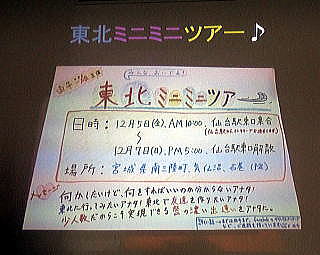 東北ミニミニツアー♪
みんな、おいでよ!
東北ミニミニツアー
日時：12月5日(金)、AM10:00、仙台駅東口集合
～
12月7日(日)、PM5:00、仙台駅東口解散
場所：宮城県南三陸町、気仙沼、石巻
何かしたいけど、何をすればいいのか分からないアナタ!
東北に行ってみたいアナタ!東北で友達を作りたいアナタ!
少人数だからこそ実現できる
出逢いをアナタに。